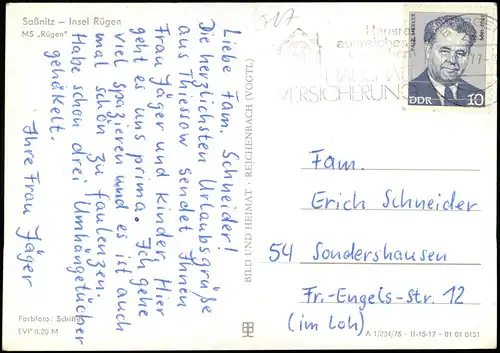 Saßnitz — Insel Rügen
MS „Rügen"
Liebe Fam. Schneider!
Die herzlichsten Urlaubsgrüße
aus Thiessow sendet Ihnen
Frau Jäger und Kinder. Hier
geht es uns prima. Ich gehe
viel spazieren und es ist auch
mal schön zu faulenzen.
Habe schon drei Umhängetücher
gehäkelt.
Ihre Frau Jäger
Farbfoto:
EVP 0,20 M
BILD UND HEIMAT · REICHENBACH (VOGTL)
Hausrat
VERSICHERUNG
DDR 10
Fam.
Erich Schneider
54 Sondershausen
Fr.-Engels-Str. 12
(im Loh)
A 1/204/76 · II-15-17 · 01 01 0151